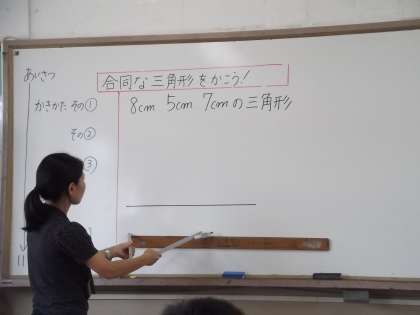 あいさつ
合同な三角形をかこう!
かきかた その①
その②
③
8cm 5cm 7cmの三角形